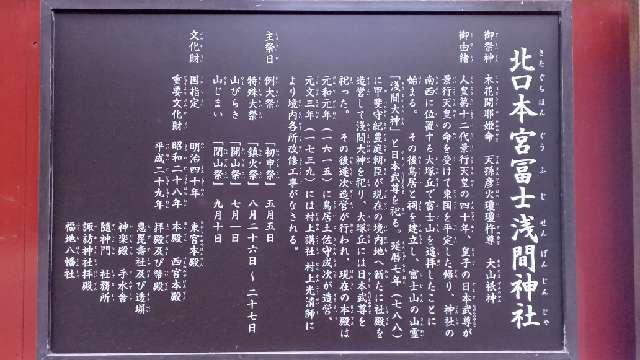 北口本宮冨士浅間神社
きたぐちほんぐうふじせんげんじんじゃ
御祭神　木花開耶姫命　天孫彦火瓊瓊杵尊　大山祇神
御由緒　人皇第十二代景行天皇の四十年、皇子の日本武尊が
景行天皇の命を受けて東国を平定した帰り、神社の
南西に位置する大塚丘で富士山を遥拝したことに
始まる。　その後鳥居と祠を建立し、富士山の山霊
「浅間大神」と日本武尊を祀る。延暦七年（七八八）
に甲斐守紀豊庭朝臣が現在の境内地へ新たに社殿を
造営して浅間大神を祀り、大塚丘には日本武尊を
祀った。　その後逐次造営が行われ、現在の本殿は
元和元年（一六一五）に鳥居土佐守成次が造営。
元文三年（一七三九）には村上講社　村上光清師に
より境内各所改修工事がなされる。
主祭日　例大祭　「初申祭」　五月五日
特殊大祭　「鎮火祭」　八月二十六日～二十七日
山びらき　「開山祭」　七月一日
山じまい　「閉山祭」　九月十日
文化財　国指定　明治四十年　東宮本殿
重要文化財　昭和二十八年　本殿　西宮本殿
平成二十九年　拝殿及び幣殿
恵毘寿社及び透塀
神楽殿　手水舎
随神門　社務所
諏訪神社拝殿
福地八幡社